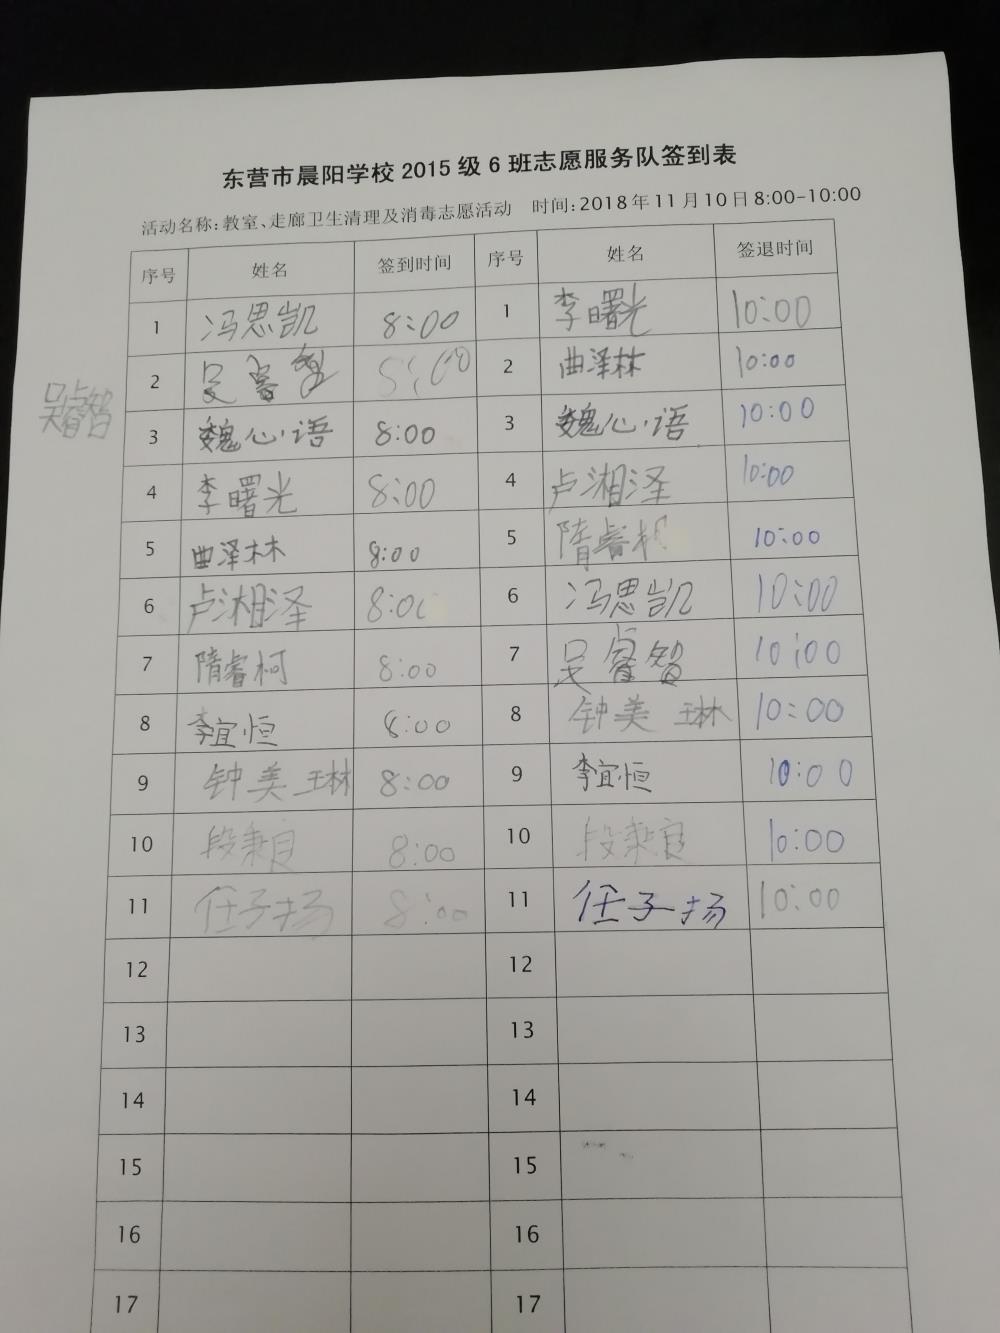 东营市晨阳学校 2015 级 6 班志愿服务队签到表
活动名称:教室、走廊卫生清理及消毒志愿活动 时间:2018 年 11 月 10 日 8:00-10:00
序号 姓名 签到时间 序号 姓名 签退时间
1 冯思凯 8:00 1 李曙光 10:00
2 吴睿智 8:00 2 曲泽林 10:00
吴睿智
3 魏心语 8:00 3 魏心语 10:00
4 李曙光 8:00 4 卢湘泽 10:00
5 曲泽林 8:00 5 隋睿柯 10:00
6 卢湘泽 8:00 6 冯思凯 10:00
7 隋睿柯 8:00 7 吴睿智 10:00
8 李宜恒 8:00 8 钟美琳 10:00
9 钟美琳 8:00 9 李宜恒 10:00
10 段秉良 8:00 10 段秉良 10:00
11 任子扬 8:00 11 任子扬 10:00
12 12
13 13
14 14
15 15
16 16
17 17